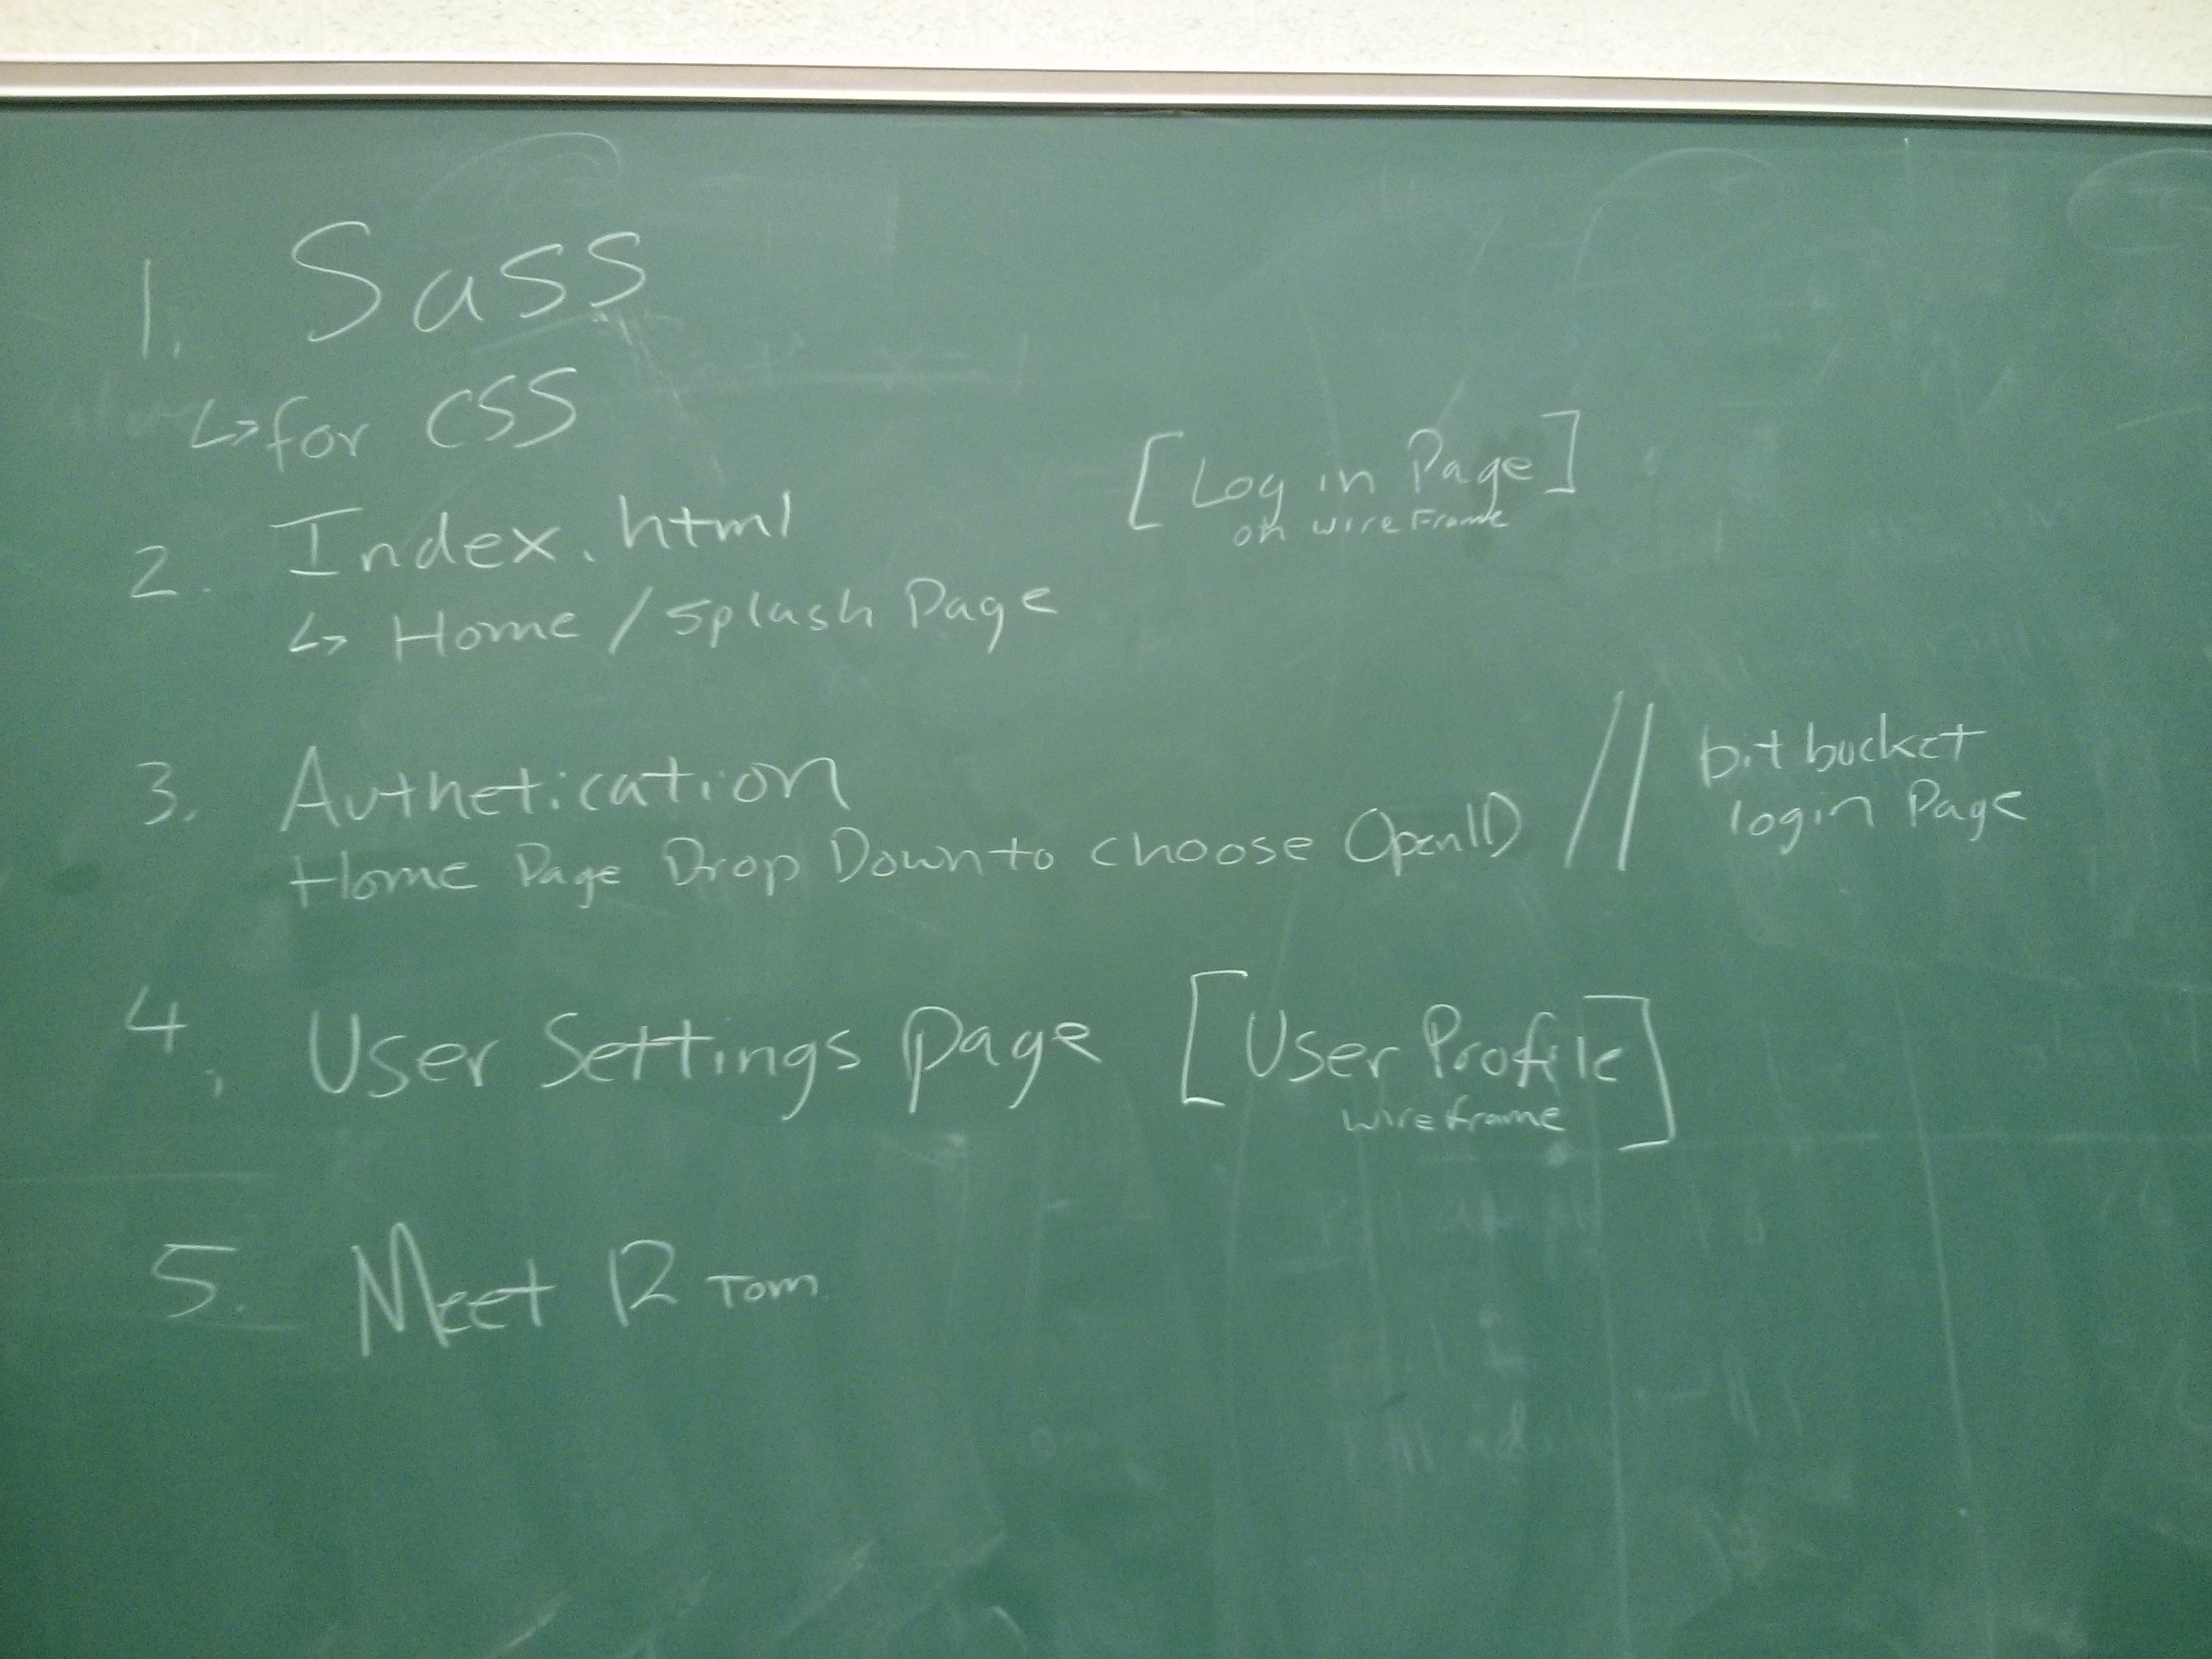 1. Sass
↳ for CSS
2. Index.html [Log in Page]
on wireFrame
↳ Home / Splash Page
3. Authetication
Home Page Drop Down to choose OpenID // bitbucket
login Page
4. User Settings page [User Profile]
wireframe
5. Meet 12 Tom.